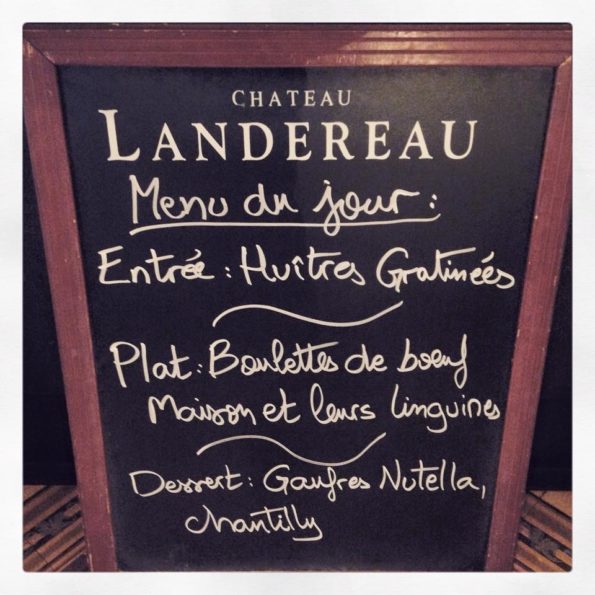 CHATEAU
LANDEREAU
Menu du jour :
Entrée : Huîtres Gratinées
Plat : Boulettes de boeuf
Maison et leurs linguines
Dessert : Gaufres Nutella,
chantilly